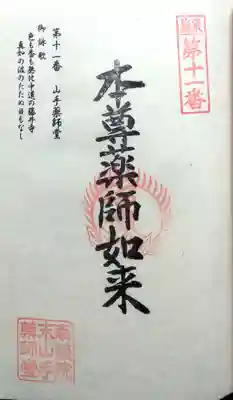 第十一番
第十一番　山手薬師堂
御詠歌
色も香も無比中道の藤井寺
真如の波のたたぬ日もなし
本尊薬師如来